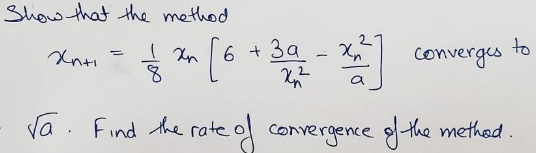 Show that the method
xₙ₊₁ = 1/8 xₙ [6 + 3a/xₙ² - xₙ²/a] converges to
√a. Find the rate of convergence of the method.